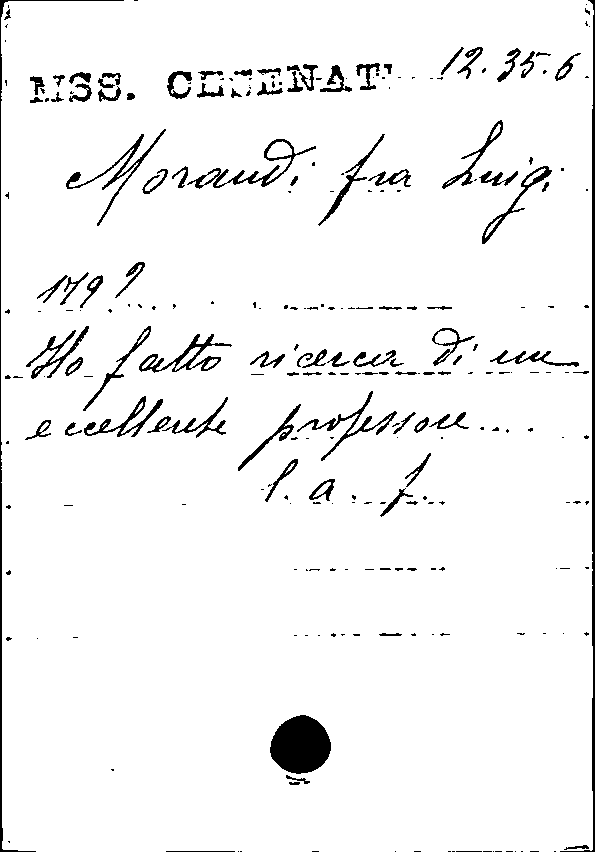 MSS. CESENATI 12.35.6
Morandi fra Luigi
179?
Ho fatto ricerca di un
eccellente professore....
l. a. f.